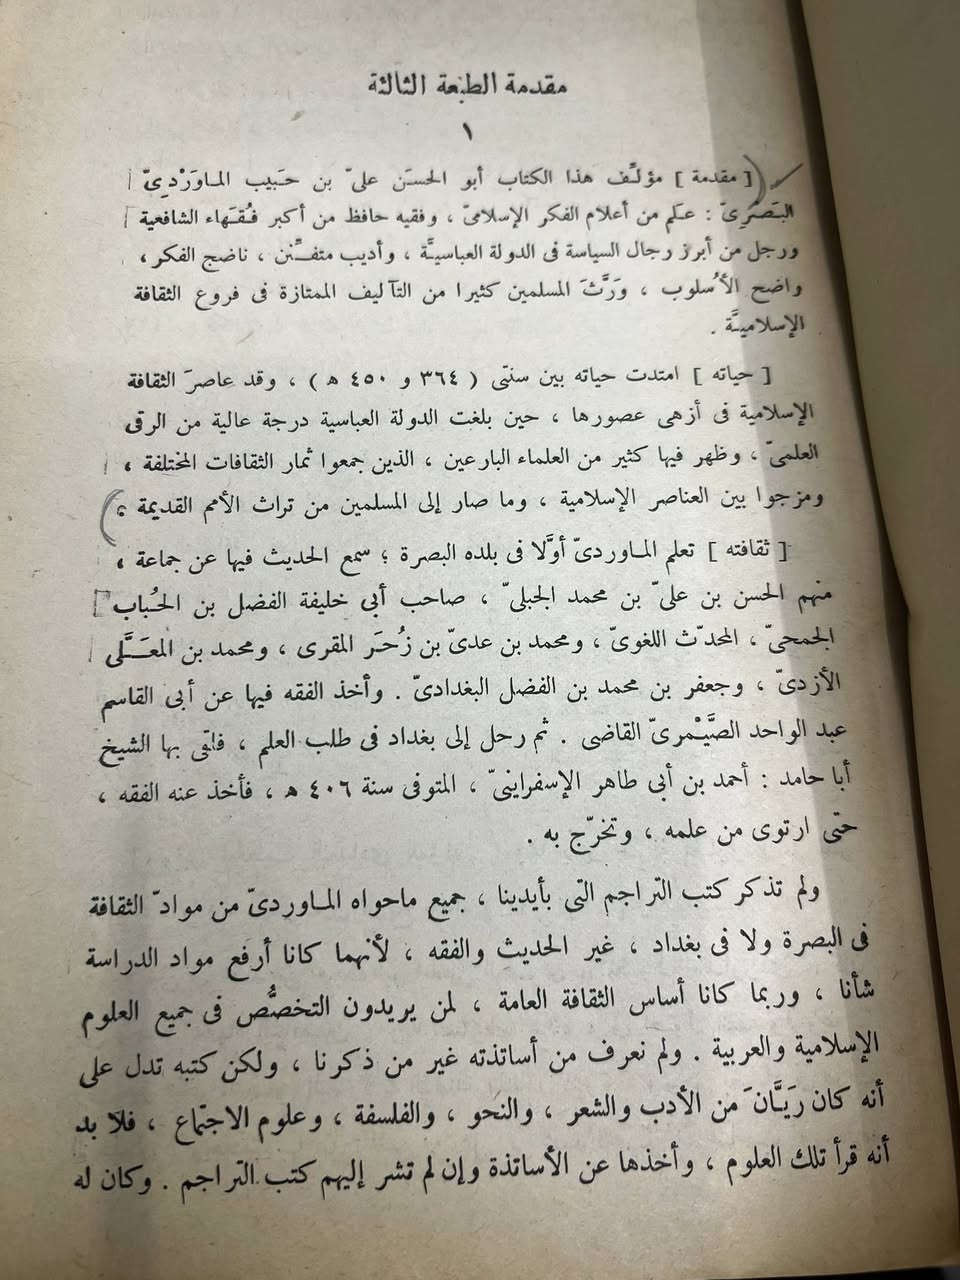 مقدمة الطبعة الثالثة
١
[ مقدمة ] مؤلِّف هذا الكتاب أبو الحسَن علىّ بن حَبيب الماوَرْدِىّ
البَصْرِىّ : علَم من أعلام الفكر الإسلامىّ ، وفقيه حافظ من أكبر فُقَهاء الشافعية
ورجل من أبرز رجال السياسة فى الدولة العباسيَّة ، وأديب متفنِّن ، ناضج الفكر ،
واضح الأُسلوب ، ورَّثَ المسلمين كثيرا من التآليف الممتازة فى فروع الثقافة
الإسلاميَّة .
[ حياته ] امتدت حياته بين سنتى ( ٣٦٤ و ٤٥٠ ه ) ، وقد عاصرَ الثقافة
الإسلامية فى أزهى عصورها ، حين بلغت الدولة العباسية درجة عالية من الرقى
العلمىّ ، وظهر فيها كثير من العلماء البارعين ، الذين جمعوا ثمار الثقافات المختلفة ،
ومزجوا بين العناصر الإسلامية ، وما صار إلى المسلمين من تراث الأمم القديمة ؟
[ ثقافته ] تعلم الماوردىّ أوَّلا فى بلده البصرة ؛ سمع الحديث فيها عن جماعة ،
منهم الحسن بن علىّ بن محمد الجبلىّ ، صاحب أبى خليفة الفضل بن الحُباب
الجمحىّ ، المحدّث اللغوىّ ، ومحمد بن عدىّ بن زُحَر المقرى ، ومحمد بن المعَلَّى
الأزدىّ ، وجعفر بن محمد بن الفضل البغدادىّ . وأخذ الفقه فيها عن أبى القاسم
عبد الواحد الصَّيْمرىّ القاضى . ثم رحل إلى بغداد فى طلب العلم ، فلقى بها الشيخ
أبا حامد : أحمد بن أبى طاهر الإسفراينىّ ، المتوفى سنة ٤٠٦ ه ، فأخذ عنه الفقه ،
حتى ارتوى من علمه ، وتخرّج به .
ولم تذكر كتب التراجم التى بأيدينا ، جميع ماحواه الماوردىّ من موادّ الثقافة
فى البصرة ولا فى بغداد ، غير الحديث والفقه ، لأنهما كانا أرفع مواد الدراسة
شأنا ، وربما كانا أساس الثقافة العامة ، لمن يريدون التخصُّص فى جميع العلوم
الإسلامية والعربية . ولم نعرف من أساتذته غير من ذكرنا ، ولكن كتبه تدل على
أنه كان رَيَّانَ من الأدب والشعر ، والنحو ، والفلسفة ، وعلوم الاجتماع ، فلا بد
أنه قرأ تلك العلوم ، وأخذها عن الأساتذة وإن لم تشر إليهم كتب التراجم . وكان له